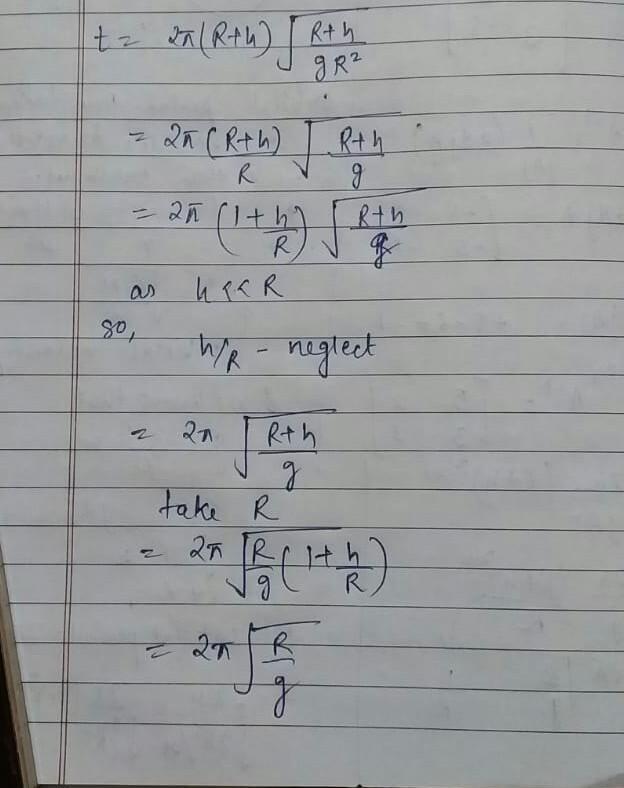 t = 2π(R+h) √(R+h / gR²)
= 2π (R+h)/R √(R+h / g)
= 2π (1 + h/R) √(R+h / g)
as h << R
so,
h/R - neglect
= 2π √(R+h / g)
take R
= 2π √(R/g (1 + h/R))
= 2π √(R/g)